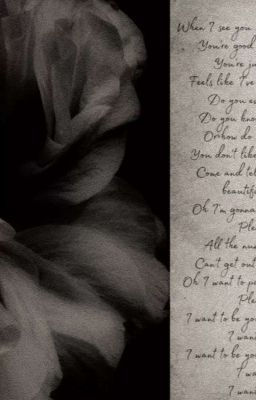 When I see you
You're good
You're ju
Feels like I've
Do you e
Do you kno
Or how do
You don't like
Come and tel
beautif
Oh I'm gonna
Ple
All the nu
Can't get out
Oh I want to pe
Ple
I want to be you
I want
I want to be you
I wa
I want